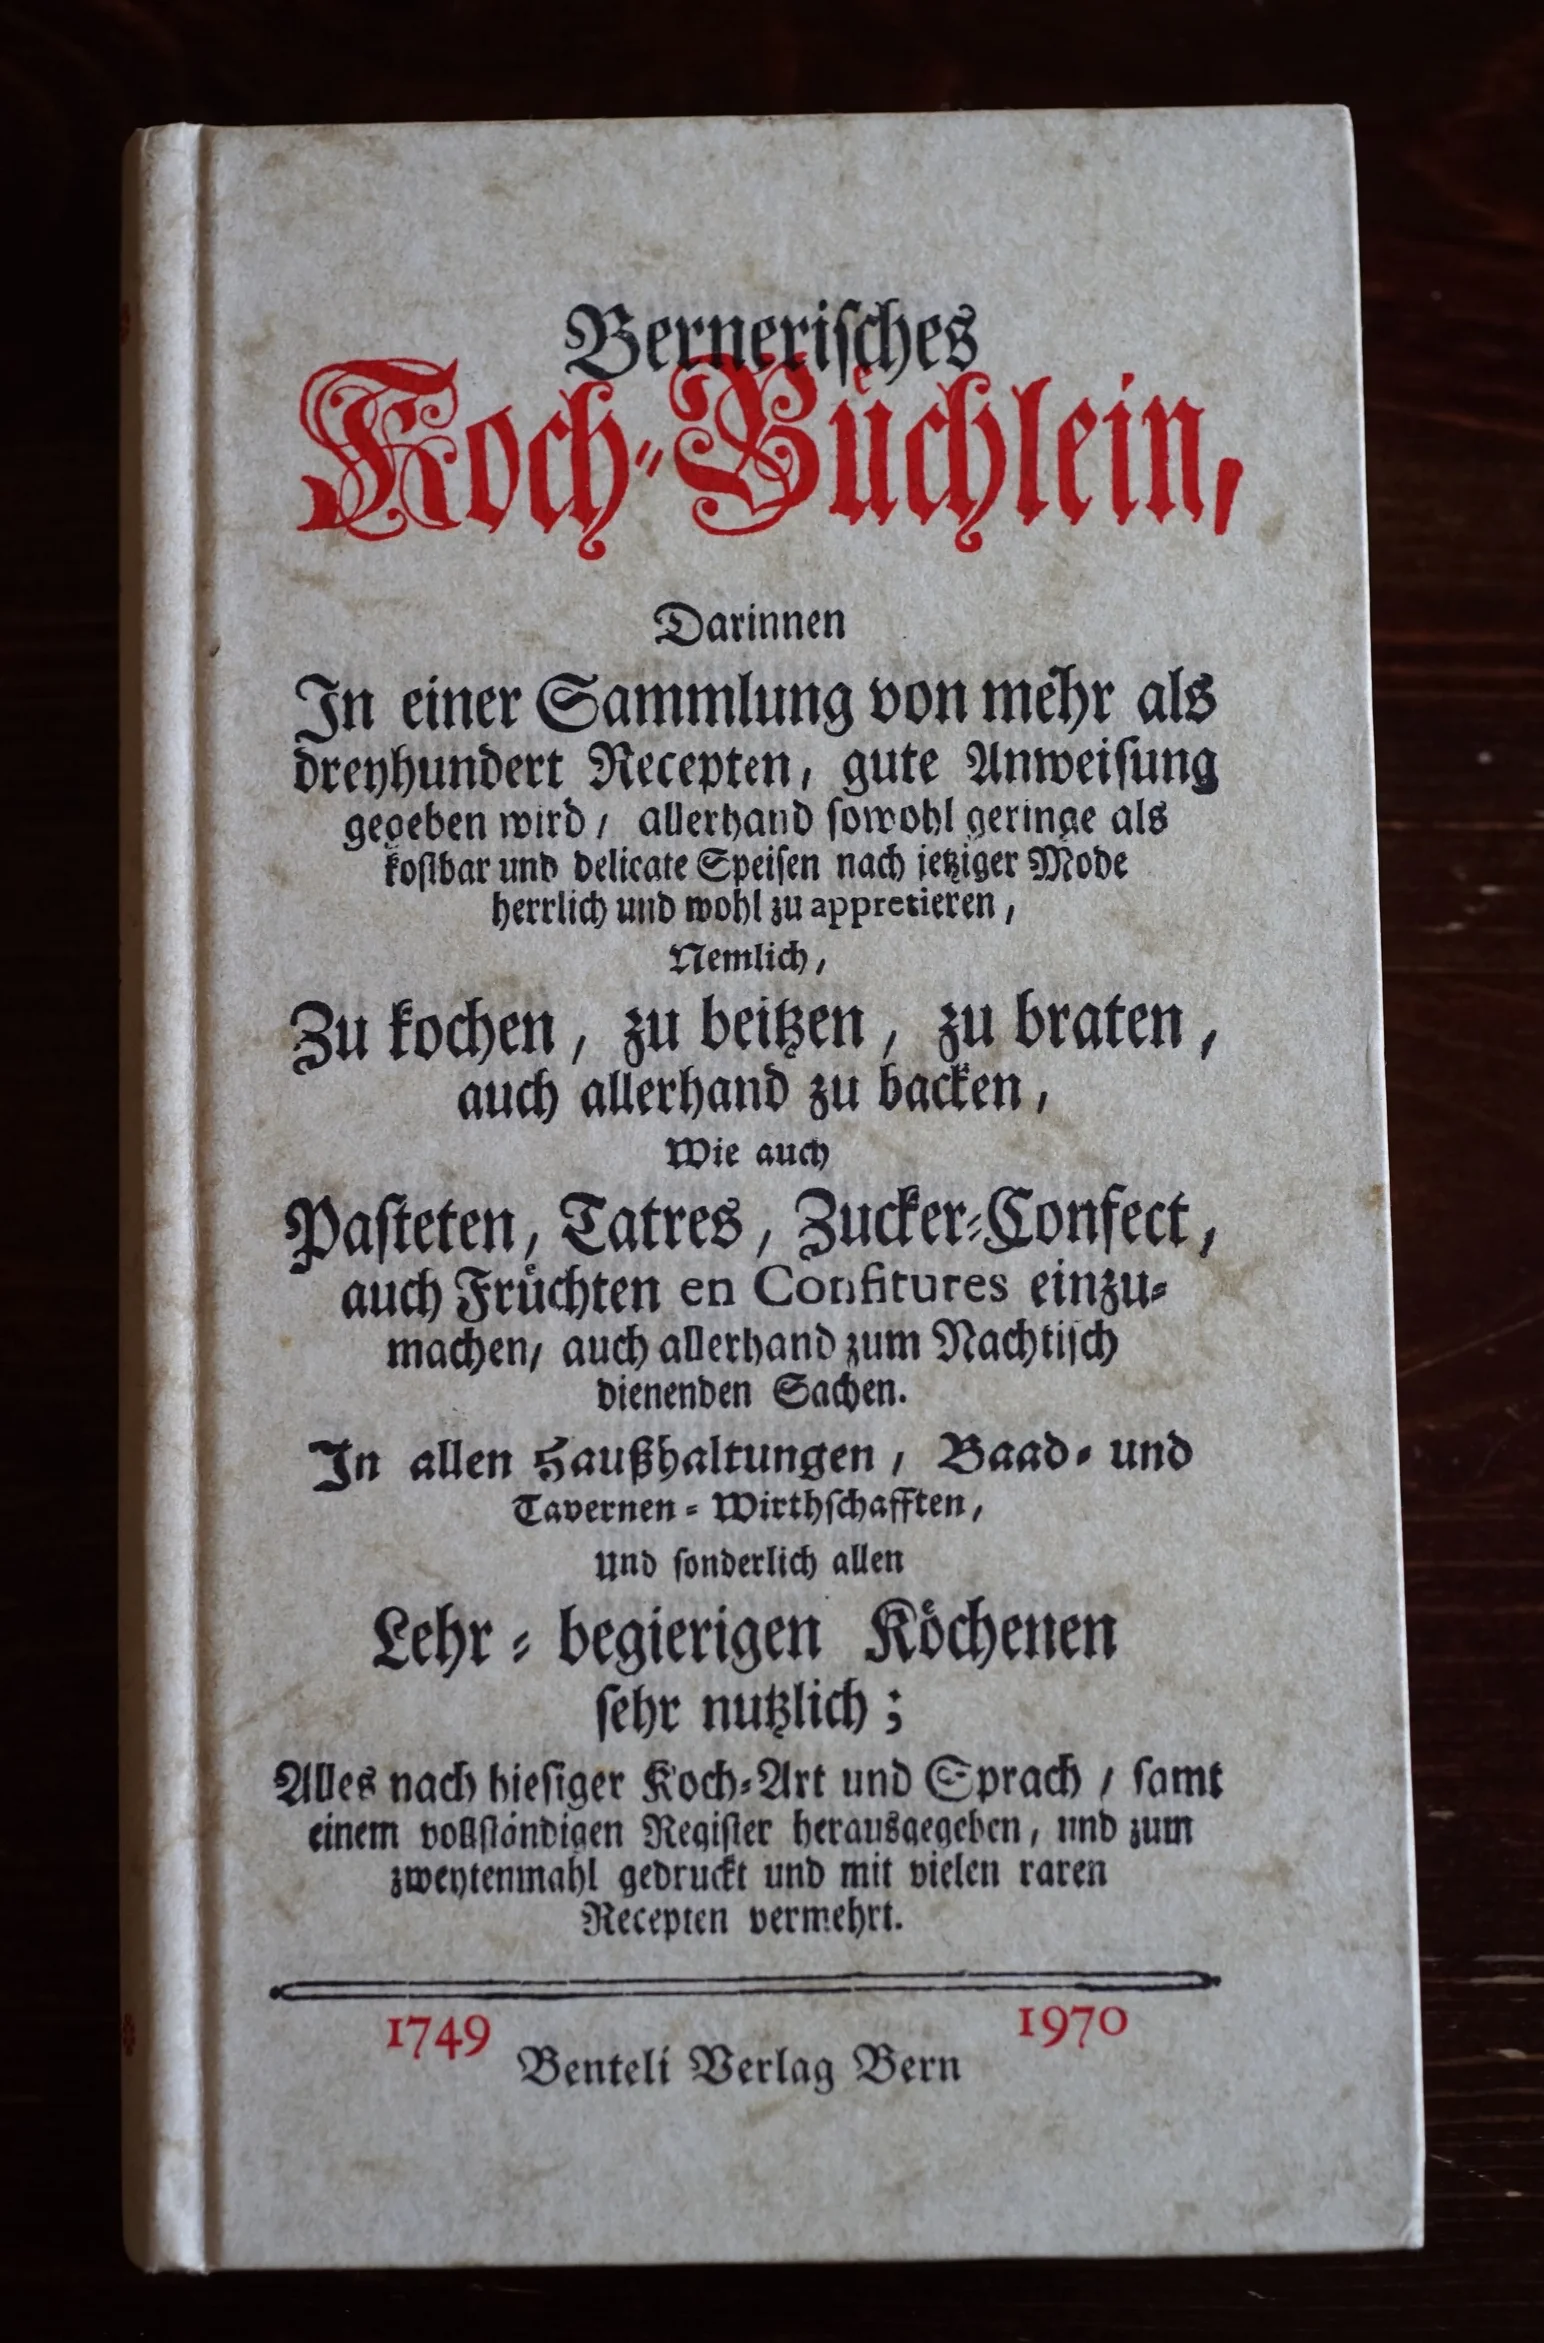 Bernerisches
Koch-Bůchlein,
Darinnen
In einer Sammlung von mehr als
dreyhundert Recepten, gute Anweisung
gegeben wird, allerhand sowohl geringe als
kostbar und delicate Speisen nach jetziger Mode
herrlich und wohl zu appretieren,
Nemlich,
Zu kochen, zu beitzen, zu braten,
auch allerhand zu backen,
Wie auch
Pasteten, Tatres, Zucker-Confect,
auch Frůchten en Confitures einzu-
machen, auch allerhand zum Nachtisch
dienenden Sachen.
In allen Haußhaltungen, Baad- und
Tavernen-Wirthschafften,
Und sonderlich allen
Lehr-begierigen Koͤchenen
sehr nutzlich;
Alles nach hiesiger Koch-Art und Sprach, samt
einem vollstaͤndigen Register herausgegeben, und zum
zweytenmahl gedruckt und mit vielen raren
Recepten vermehrt.
1749 1970
Benteli Verlag Bern